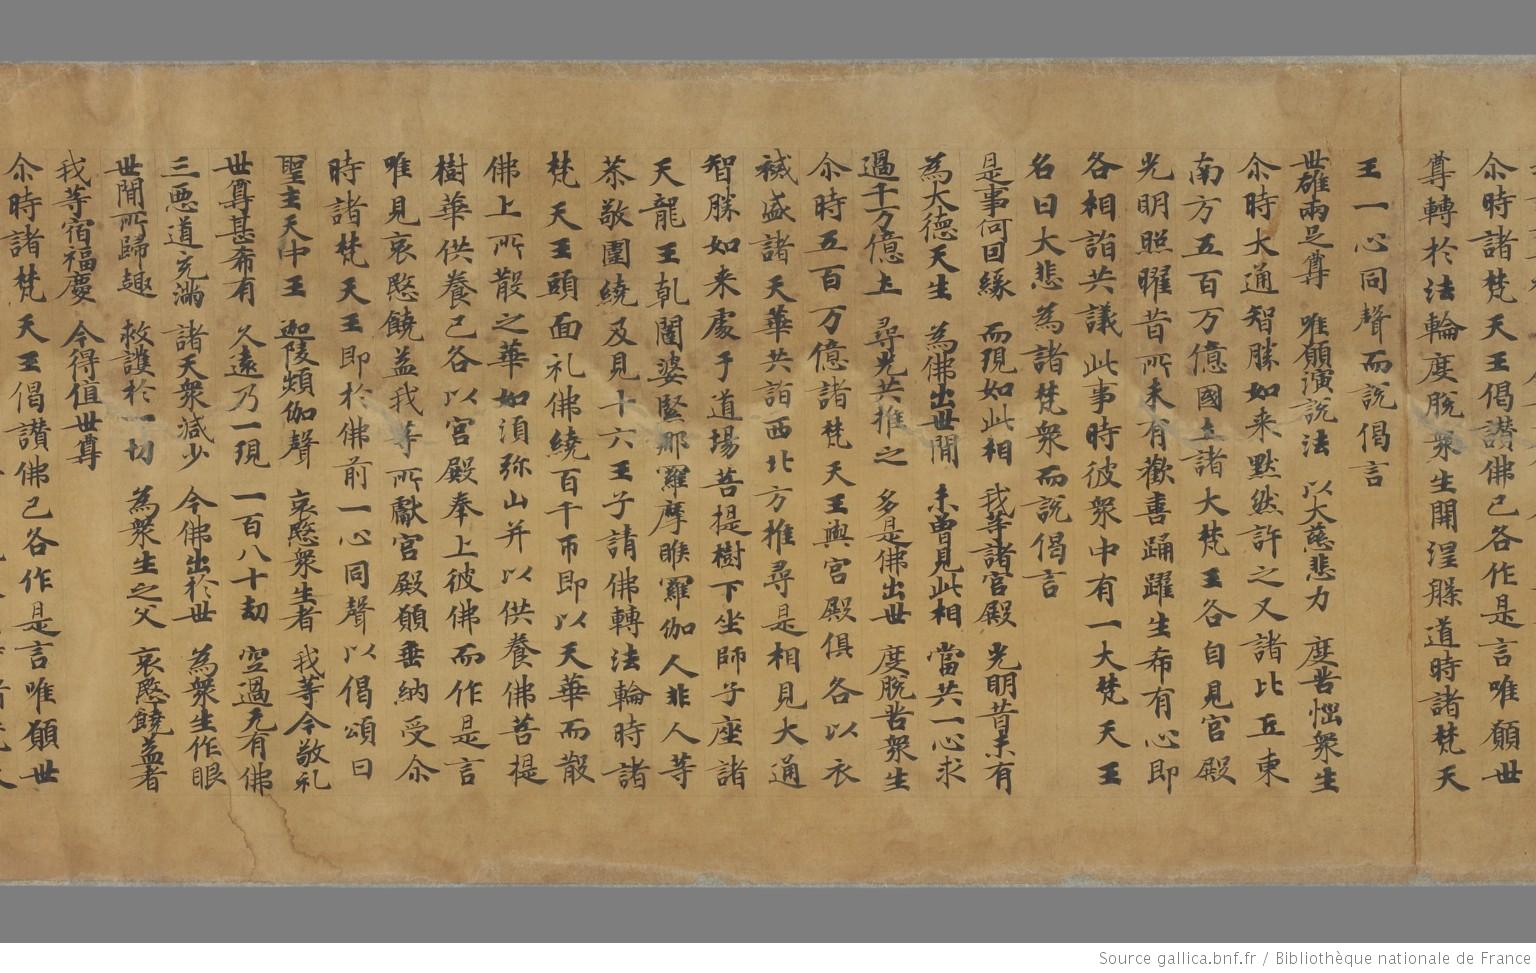 尒時諸梵天王偈讃佛已各作是言唯願世
尊轉於法輪度脫衆生開涅槃道時諸梵天
王一心同聲而說偈言
世雄兩足尊　唯願演說法　以大慈悲力　度苦惱衆生
尒時大通智勝如来默然許之又諸比丘東
南方五百万億國土諸大梵王各自見宮殿
光明照曜昔所未有歡喜踊躍生希有心即
各相詣共議此事時彼衆中有一大梵天王
名曰大悲為諸梵衆而說偈言
是事何因緣　而現如此相　我等諸宮殿　光明昔未有
為大德天生　為佛出世間　未曾見此相　當共一心求
過千万億土　尋光共推之　多是佛出世　度脫苦衆生
尒時五百万億諸梵天王與宮殿俱各以衣
裓盛諸天華共詣西北方推尋是相見大通
智勝如来處于道場菩提樹下坐師子座諸
天龍王乹闥婆緊那羅摩睺羅伽人非人等
恭敬圍繞及見十六王子請佛轉法輪時諸
梵天王頭面礼佛繞百千帀即以天華而散
佛上所散之華如須弥山并以供養佛菩提
樹華供養已各以宮殿奉上彼佛而作是言
唯見哀愍饒益我等所獻宮殿願垂納受尒
時諸梵天王即於佛前一心同聲以偈頌曰
聖主天中王　迦陵頻伽聲　哀愍衆生者　我等今敬礼
世尊甚希有　久遠乃一現　一百八十劫　空過无有佛
三惡道充滿　諸天衆減少　今佛出於世　為衆生作眼
世間所歸趣　救護於一切　為衆生之父　哀愍饒益者
我等宿福慶　今得值世尊
尒時諸梵天王偈讃佛已各作是言唯願世
Source gallica.bnf.fr / Bibliothèque nationale de France